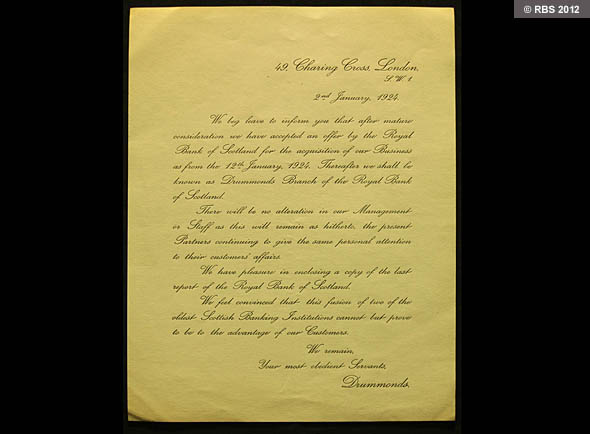 © RBS 2012
49, Charing Cross, London,
S.W.1.
2nd January, 1924.
We beg leave to inform you that after mature
consideration we have accepted an offer by the Royal
Bank of Scotland for the acquisition of our Business
as from the 12th January, 1924. Thereafter we shall be
known as Drummonds Branch of the Royal Bank
of Scotland.
There will be no alteration in our Management
or Staff as this will remain as hitherto, the present
Partners continuing to give the same personal attention
to their customers' affairs.
We have pleasure in enclosing a copy of the last
report of the Royal Bank of Scotland.
We feel convinced that this fusion of two of the
oldest Scottish Banking Institutions cannot but prove
to be to the advantage of our Customers.
We remain,
Your most obedient Servants,
Drummonds.